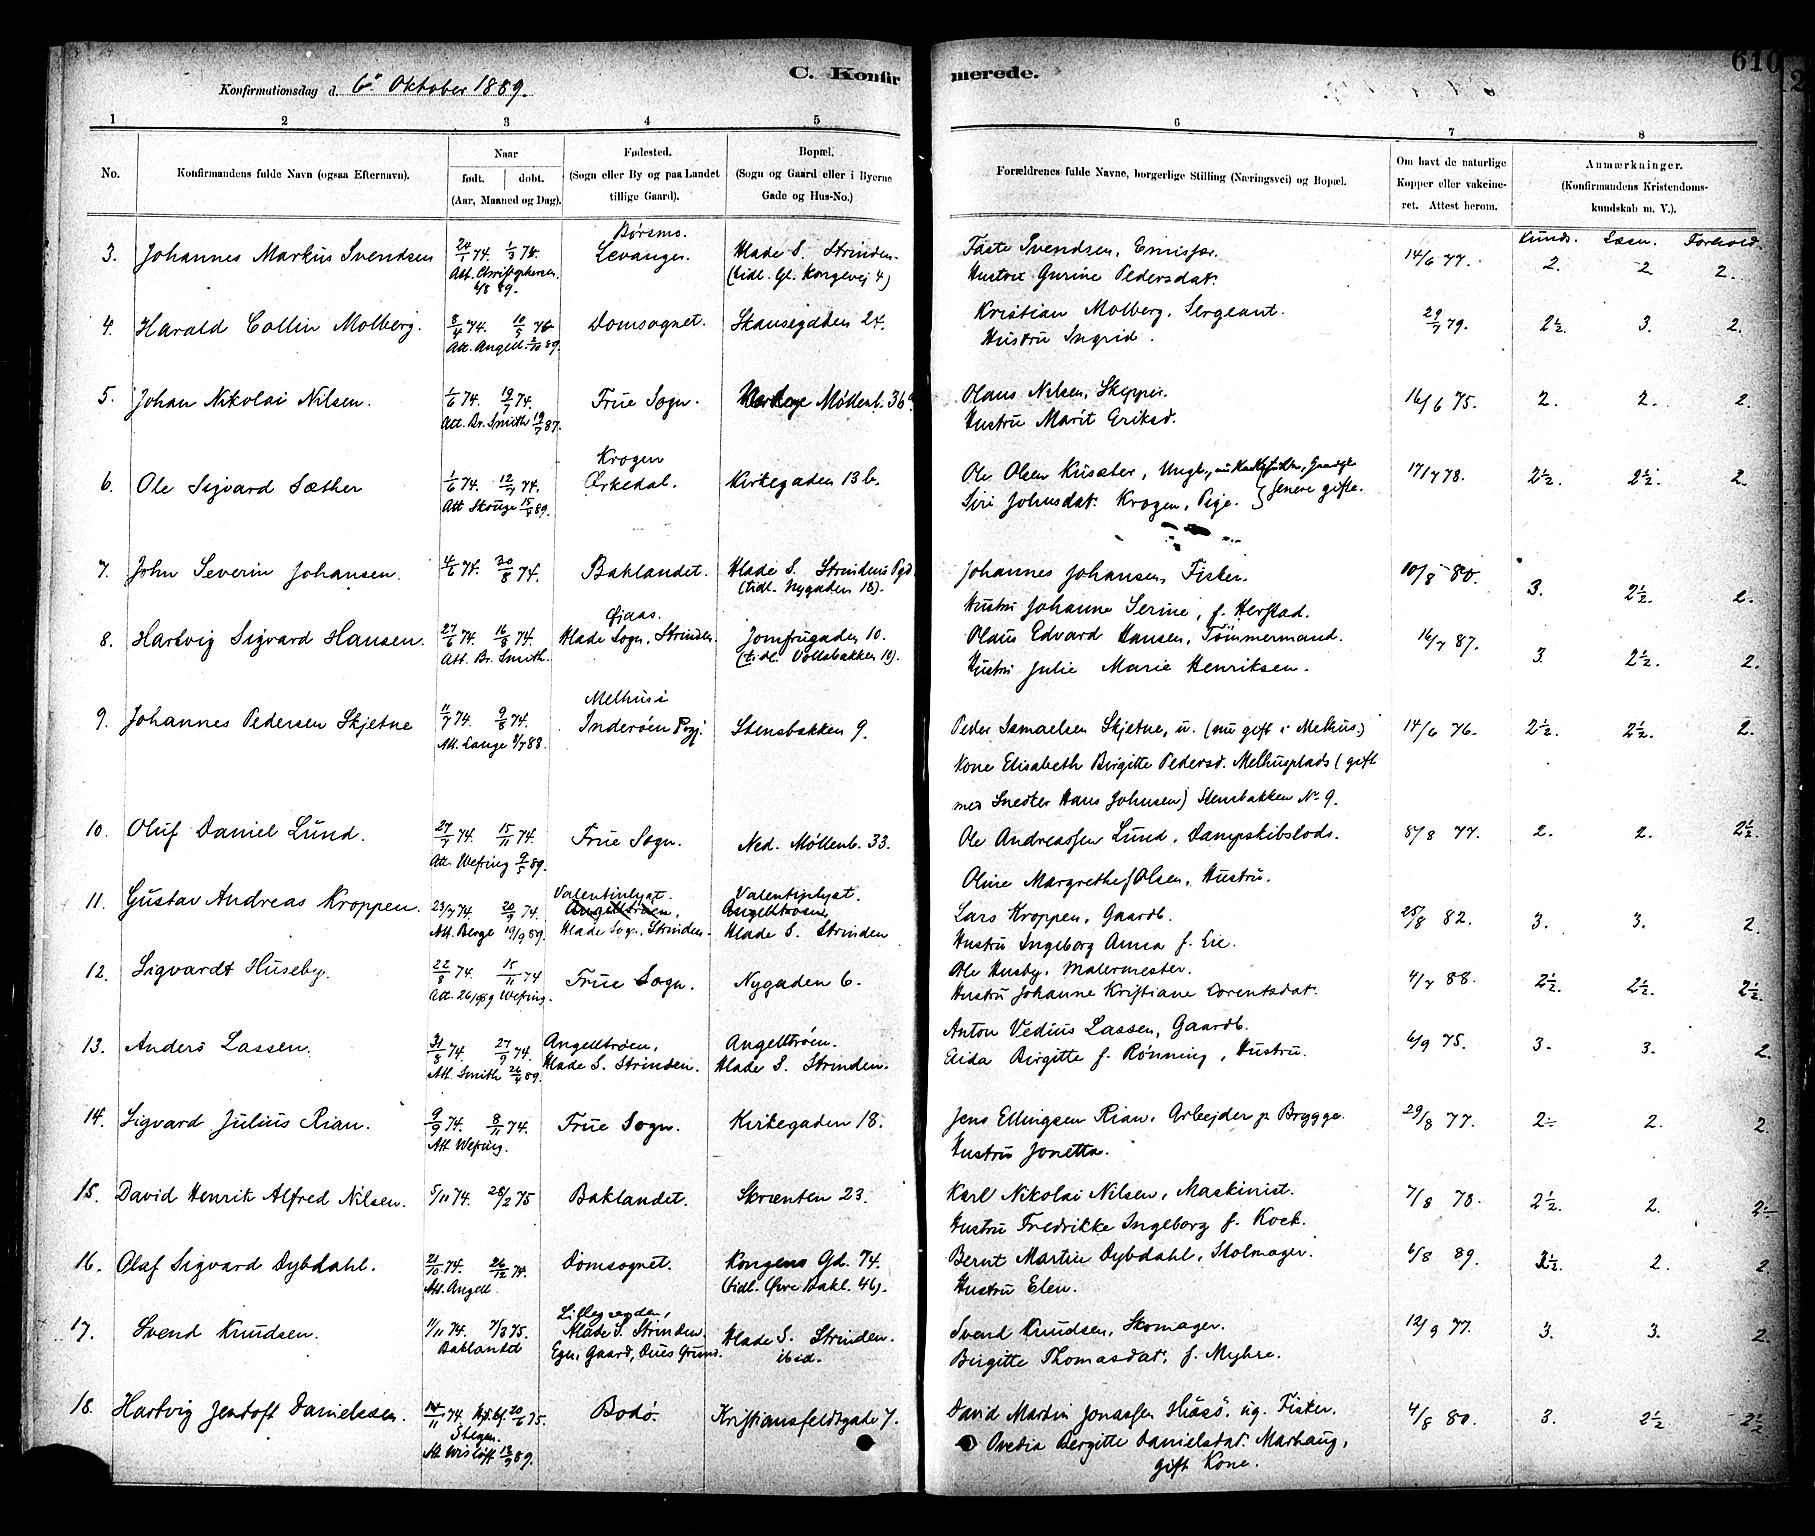 C. Konfir
merede.
610
Konfirmationsdag d. 6te Oktober 1889.
1 2 3 4 5 6 7 8
No.
Konfirmandens fulde Navn (ogsaa Efternavn).
Naar
født. døbt.
(Aar, Maaned og Dag).
Fødested.
(Sogn eller By og paa Landet
tillige Gaard).
Bopæl.
(Sogn og Gaard eller i Byerne
Gade og Hus-No.)
Forældrenes fulde Navne, borgerlige Stilling (Næringsvei) og Bopæl.
Om havt de naturlige
Kopper eller vakcine-
ret. Attest herom.
Anmærkninger.
(Konfirmandens Kristendoms-
kundskab m. V.).
Kunds. Læsn. Forhold.
3. Johannes Markus Svendsen
24/1 74. 1/3 74.
Att. Christophersen
6/8 89.
Børsmo.
Levanger.
Hlade S. Strinden.
(tidl. Gl. Kongevej 4)
Faste Svendsen, Emissær.
Hustru Gurine Pedersdat.
14/6 77. 2. 2 2.
4. Harald Collin Molberg.
8/4 74. 10/5 76
Att. Angell. 2/10 89.
Domsognet.
Skansegaden 24.
Kristian Molberg, Sergeant.
Hustru Ingrid.
29/7 79. 2½. 3. 2.
5. Johan Nikolai Nilsen.
1/6 74. 19/7 74.
Att. Br. Smith 19/7 87.
Frue Sogn.
Møllenb. 36a.
Olaus Nilsen, Skipper.
Hustru Marit Eriksd.
16/6 75. 2. 2. 2.
6. Ole Sigvard Sæther
1/6 74. 12/7 74.
Att Skouge 15/8 89.
Krogen
Ørkedal.
Kirkegaden 13 b.
Ole Olsen Kusæter, Ungk.,
Siri Johnsdat. Krogen, Pige. } senere gifte.
17/7 78. 2½. 2½. 2.
7. John Severin Johansen.
4/6 74. 30/8 74.
Baklandet.
Hlade S. Strindens Pgd.
(tidl. Nygaden 18).
Johannes Johansen, Fisker.
Hustru Johanne Serine, f. Herstad.
10/8 80. 3. 2½. 2.
8. Hartvig Sigvard Hansen.
27/6 74. 16/8 74.
Att. Br. Smith.
Gjaas.
Hlade Sogn, Strinden.
Jomfrugaden 10.
(tidl. Vollabakken 18).
Olaus Edvard Hansen, Tømmermand.
Hustru Julie Marie Henriksen.
16/7 87. 3. 2½. 2.
9. Johannes Pedersen Skjetne
11/7 74. 9/8 74.
Att. Lange 9/7 88.
Melhus i
Inderøen Pgj.
Stensbakken 9.
Peder Ismaelsen Skjetne, u. (nu gift i Melhus.)
Kone Elisabeth Birgitte Pedersd. Melhusplads (gift
med Snedker Hans Johnsen) Stensbakken No 9.
14/6 76. 2½. 2½. 2.
10. Oluf Daniel Lund.
27/7 74. 15/11 74.
Att. Wefring 9/5 89.
Frue Sogn.
Ned. Møllenb. 33.
Ole Andreassen Lund, Dampskibslods.
Oline Margrethe f Olsen, Hustru.
8/8 77. 2. 2. 2½.
11. Gustav Andreas Kroppen.
23/7 74. 20/9 74.
Att. Berge 19/9 89.
Valentinlyst.
Angelltrøen,
Hlade Sogn, Strinden.
Valentinlyst.
Angelltrøen,
Hlade S. Strinden
Lars Kroppen, Gaardb.
Hustru Ingeborg Anna f. Eie.
25/8 82. 3. 3. 2.
12. Sigvardt Huseby.
22/8 74. 15/11 74
Att. 26/9 89 Wefring.
Frue Sogn.
Nygaden 6.
Ole Husby, Malermester.
Hustru Johanne Kristiane Lorentsdat.
4/7 88. 2½. 2½. 2½.
13. Anders Lassen.
31/8 74. 27/9 74.
Att. Smith 26/4 89.
Angelltrøen,
Hlade S. Strinden.
Angelltrøen.
Hlade S. Strinden.
Anton Vedius Lassen, Gaardb.
Birgitte f. Rønning, Hustru.
6/9 75. 3. 3. 2.
14. Sigvard Julius Rian.
9/9 74. 8/11 74.
Att Wefring.
Frue Sogn.
Kirkegaden 18.
Jens Ellingsen Rian, Arbejder p. Brygge.
Hustru Jonetta.
29/8 77. 2÷ 2. 2.
15. David Henrik Alfred Nilsen.
5/11 74. 28/2 75
Baklandet.
Skrænten 23.
Karl Nikolai Nilsen, Maskinist.
Hustru Fredrikke Ingeborg f. Kock.
7/8 78. 2½. 2. 2÷
16. Olaf Sigvard Dybdahl.
21/10 74. 26/12 74.
Att. Angell.
Domsognet.
Kongens Gd. 74.
(tidl. Øvre Bakl. 46).
Bernt Martin Dybdahl, Stolmager.
Hustru Elen.
6/8 89. 2½. 2. 2.
17. Svend Knudsen.
11/11 74. 7/3 75.
Baklandet
Hlade S. Strinden.
Egen Gaard, Grund.
Hlade S. Strinden.
ibid.
Svend Knudsen, Skomager.
Birgitte Thomasdat. f. Myhre.
12/9 77. 3. 3. 2.
18. Hartvig Jentoft Danielsen.
14/11 74. Hjd. bf. 20/6 75.
Stegen.
Att. Wisløff 18/9 89.
Bodø.
Kristiansfeldtgade 7.
David Martin Jonassen Husø, ug. Fisker.
Ovedia Bergitte Danielsdat. Marhaug,
gift Kone.
4/8 80. 3. 2½ 2½